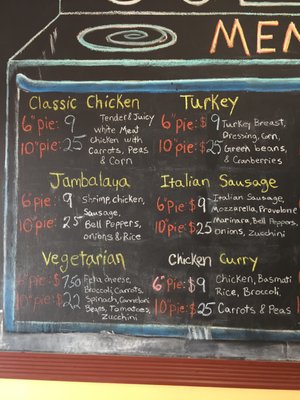 MEN
Classic Chicken
6" pie: 9 Tender & Juicy
white Meat
10" pie: 25 Chicken with
Carrots, Peas
& Corn
Turkey
6" pie: $9 Turkey Breast,
Dressing, Corn,
10" pie: $25 Green beans,
& Cranberries
Jambalaya
6" pie: 9 Shrimp, chicken,
Sausage,
10" pie: 25 Bell Peppers,
onions & Rice
Italian Sausage
6" pie: $9 Italian Sausage,
Mozzarella, Provelone
10" pie: $25 Marinara, Bell Peppers,
Onions, Zucchini
Vegetarian
6" pie: $7.50 Feta cheese,
Broccoli, Carrots,
10" pie: $22 Spinach, Cannelloni
Beans, Tomatoes,
Zucchini
Chicken Curry
6" pie: $9 Chicken, Basmati
Rice, Broccoli,
10" pie: $25 Carrots & Peas